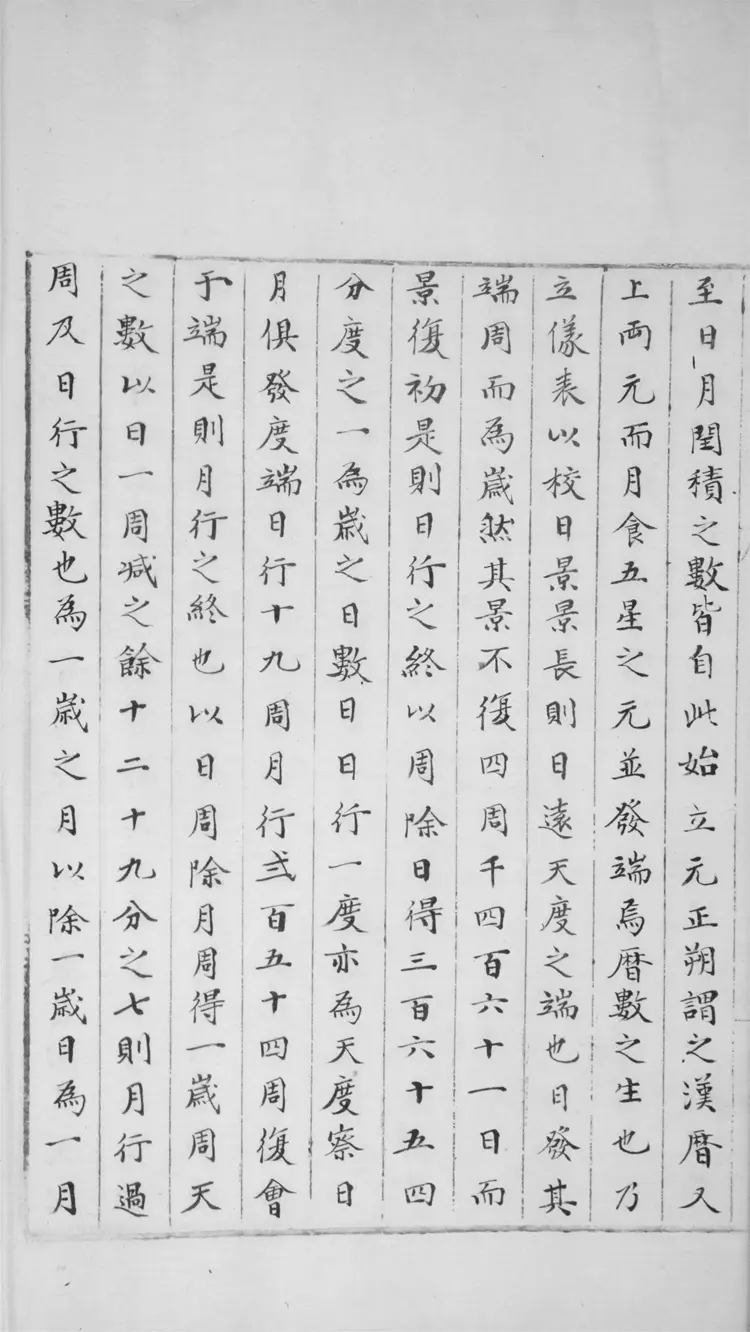 至日月閏積之數皆自此始立元正朔謂之漢曆又
上両元而月食五星之元並發端焉曆數之生也乃
立儀表以校日景景長則日遠天度之端也日發其
端周而為歲然其景不復四周千四百六十一日而
景復初是則日行之終以周除日得三百六十五四
分度之一為歲之日數日日行一度亦為天度察日
月俱發度端日行十九周月行弐百五十四周復會
于端是則月行之終也以日周除月周得一歲周天
之數以日一周減之餘十二十九分之七則月行過
周及日行之數也為一歲之月以除一歲日為一月